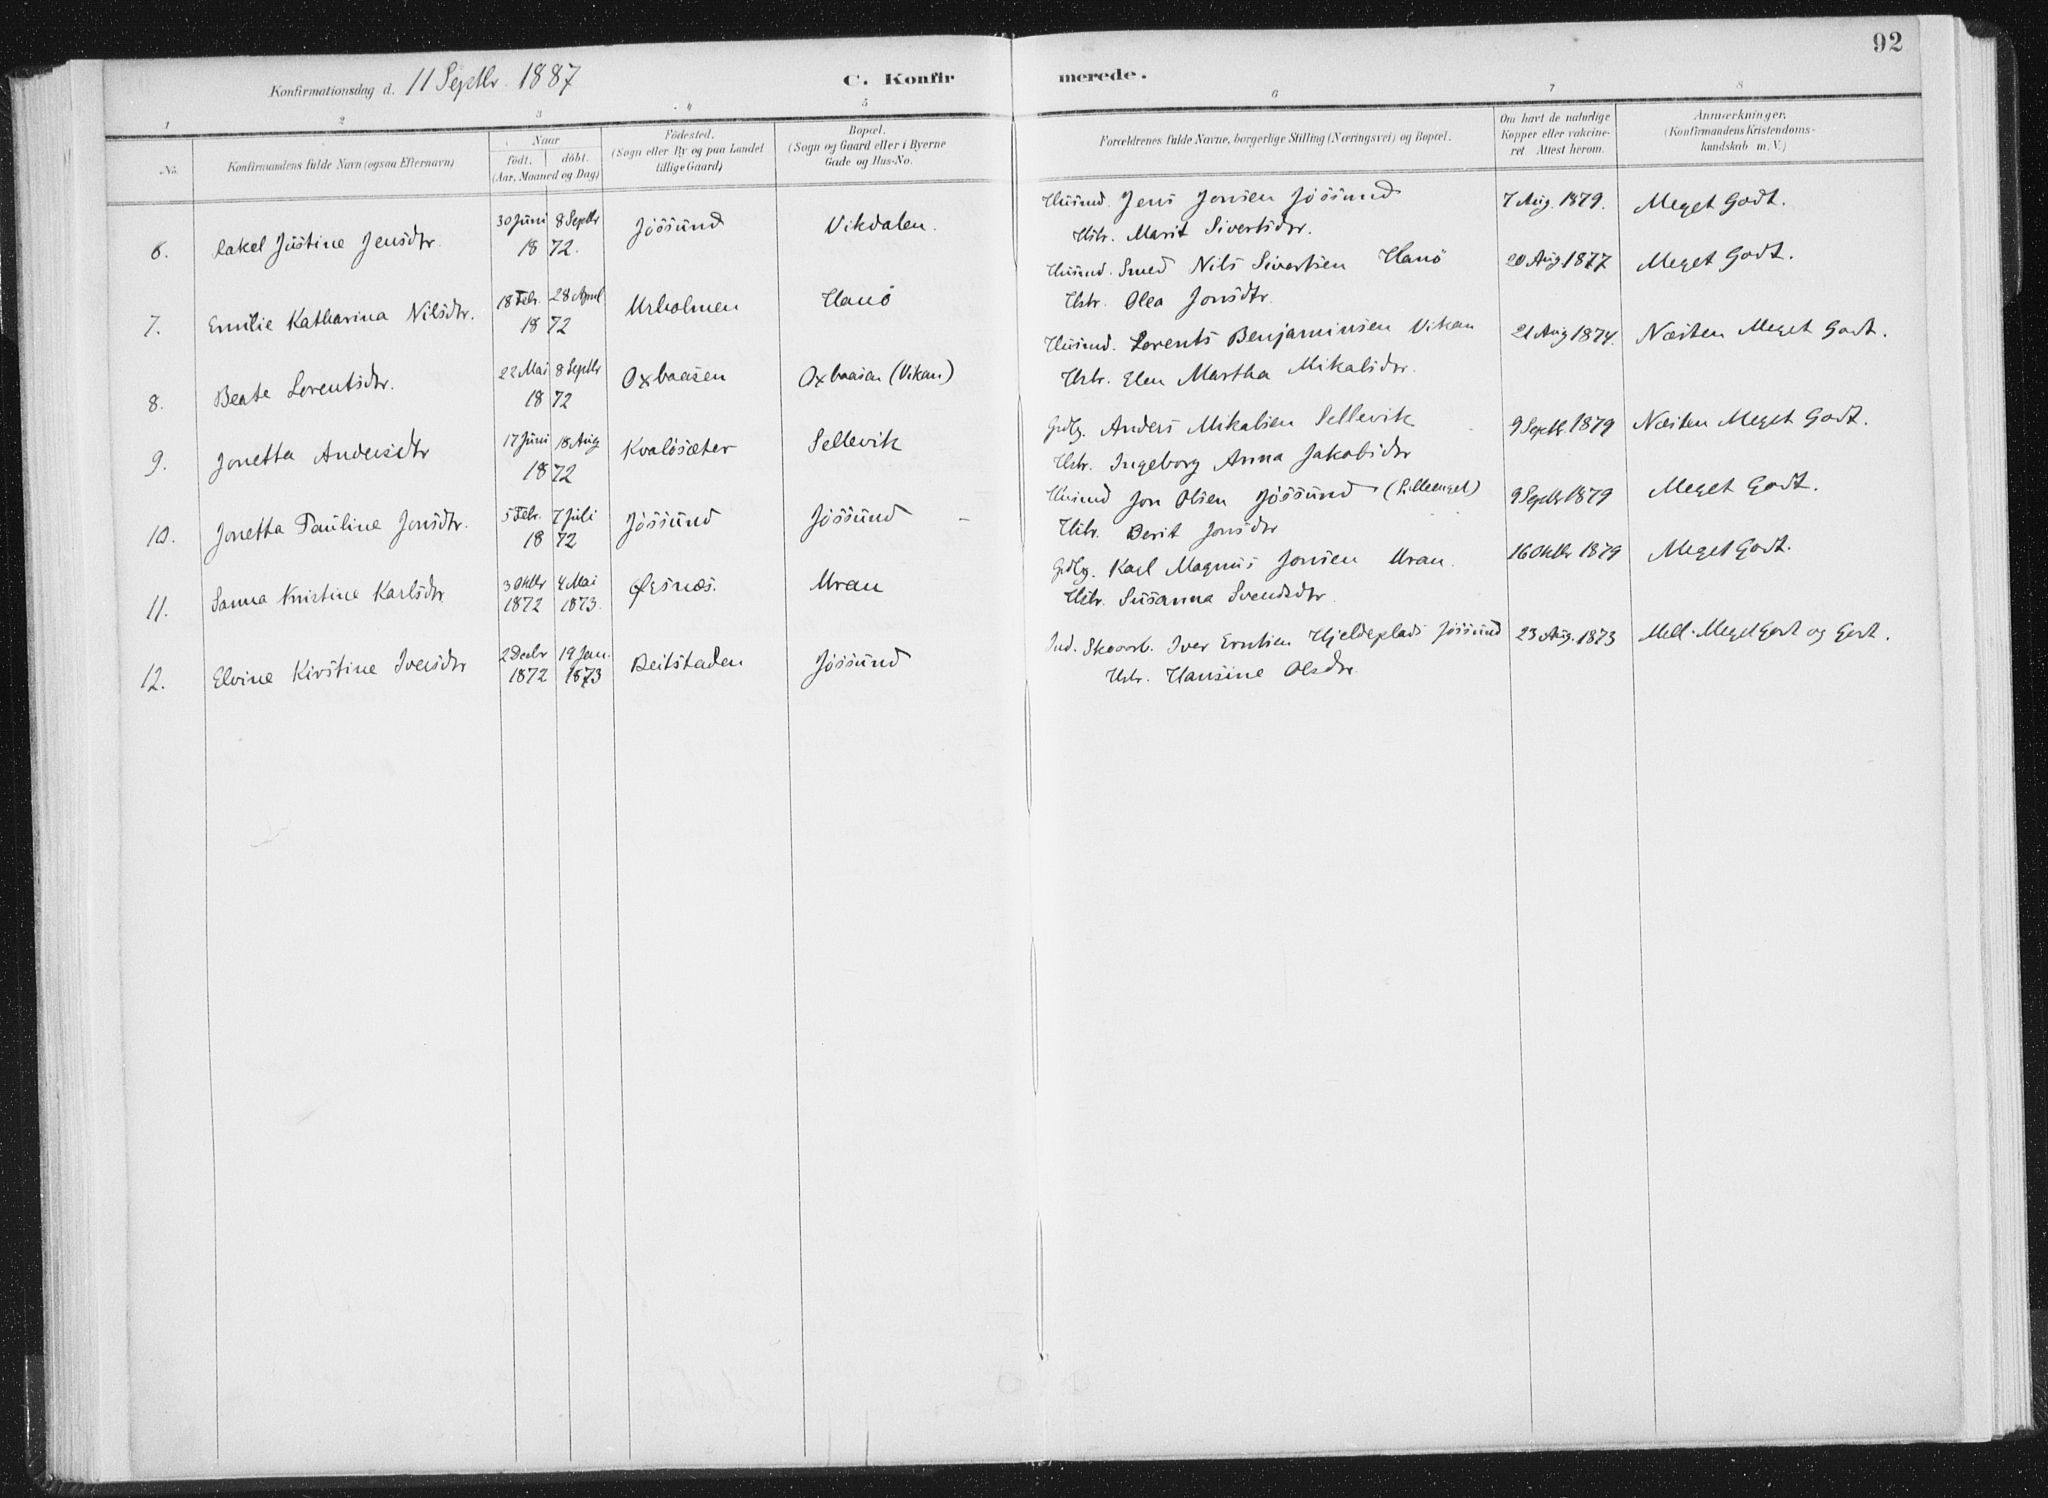 92
Konfirmationsdag d. 11 Septbr. 1887 C. Konfirmerede.
1 2 3 4 5 6 7 8
No. Konfirmandens fulde Navn (ogsaa Efternavn) Naar født. døbt. (Aar, Maaned og Dag) Fødested. (Sogn eller By og paa Landet tillige Gaard) Bopæl. (Sogn og Gaard eller i Byerne Gade og Hus-No. Forældrenes fulde Navne, borgerlige Stilling (Næringsvei) og Bopæl. Om havt de naturlige Kopper eller vakcineret Attest herom. Anmærkninger. (Konfirmandens Kristendomskundskab m. V.)
6. Rakel Justine Jensdtr. 30 Juni 8 Septbr 1872. Jössund Vikdalen. Husmd. Jens Jonsen Jössund 7 Aug. 1879. Meget Godt.
Hstr. Marit Sivertsdtr.
7. Emilie Katharina Nilsdtr. 18 Febr. 28 April 1872 Urholmen Hanö Husmd. Smed Nils Sivertsen Hanö 20 Aug 1877 Meget Godt.
Hstr. Olea Jonsdtr.
8. Beate Lorentsdtr. 22 Mai 8 Septbr 1872 Oxbaasen Oxbaasen (Vikan) Husmd. Lorents Benjaminsen Vikan 21 Aug 1874. Næsten Meget Godt.
Hstr. Elen Martha Mikalsdtr.
9. Jonetta Andersdtr 17 Juni 18 Aug 1872 Kvalösæter Sellevik Grdbg. Anders Mikalsen Sellevik 9 Septb. 1879 Næsten Meget Godt.
Hstr. Ingeborg Anna Jakobsdtr
10. Jonetta Pauline Jonsdtr. 5 Febr. 7 Juli 1872 Jössund Jössund Husmd Jon Olsen Jössund (Lilleenget) 9 Septbr 1879 Meget Godt.
Hstr. Berit Jonsdtr
11. Sanna Kristine Karlsdtr 3 Oktbr 1872 4 Mai 1873. Øesnæs. Uran Grdbg. Karl Magnus Jonsen Uran. 16 Oktbr 1879 Meget Godt.
Hstr. Susanna Svendsdtr.
12. Elvine Kirstine Iversdtr 2 Decbr 1872 19 Jan. 1873 Beitstaden Jössund Ind. Skoarb. Iver Erntsen Hjeldeplads Jössund 23 Aug. 1873 Mell. Meget Godt og Godt.
Hstr. Hansine Olsdtr.